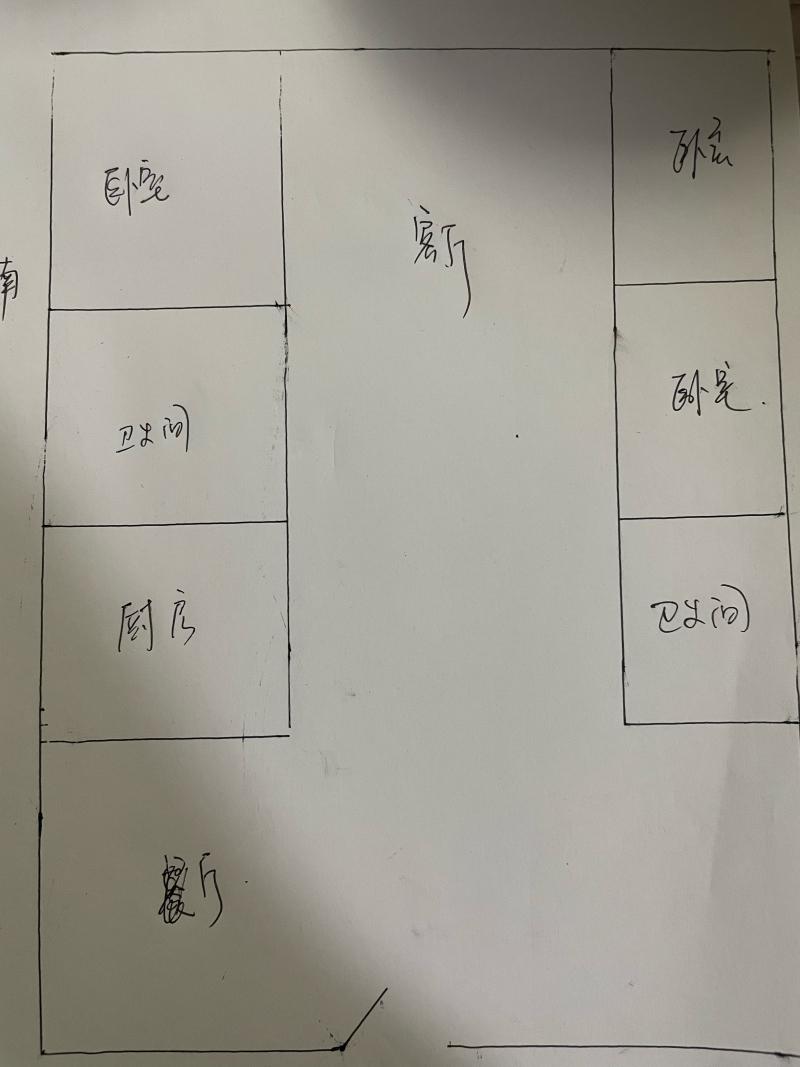 卧室
卧室
客厅
南
卧室
卫生间
厨房
卫生间
厅